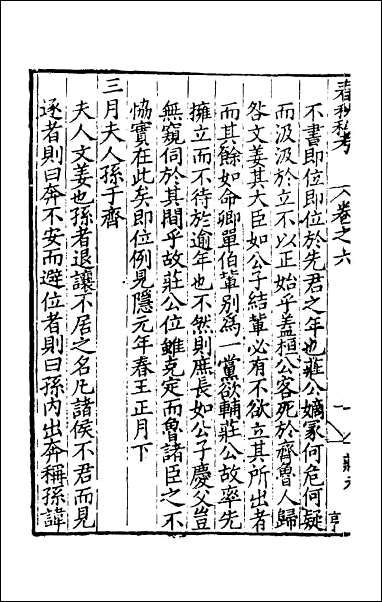 春秋私考　卷之六　一　莊元
不書即位即位於先君之年也莊公嫡冢何危何疑
而汲汲於立不以正始乎蓋桓公客死於齊魯人歸
咎文姜其大臣如公子結輩必有不欲立其所出者
而其餘如命卿單伯輩別為一黨欲輔莊公故率先
擁立而不待於逾年也不然則庶長如公子慶父豈
無窺伺於其間乎故莊公位雖克定而魯諸臣之不
恊實在此矣即位例見隱元年春王正月下
三月夫人孫于齊
夫人文姜也孫者退讓不居之名凡諸侯不君而見
逐者則曰奔不安而避位者則曰孫内出奔稱孫諱